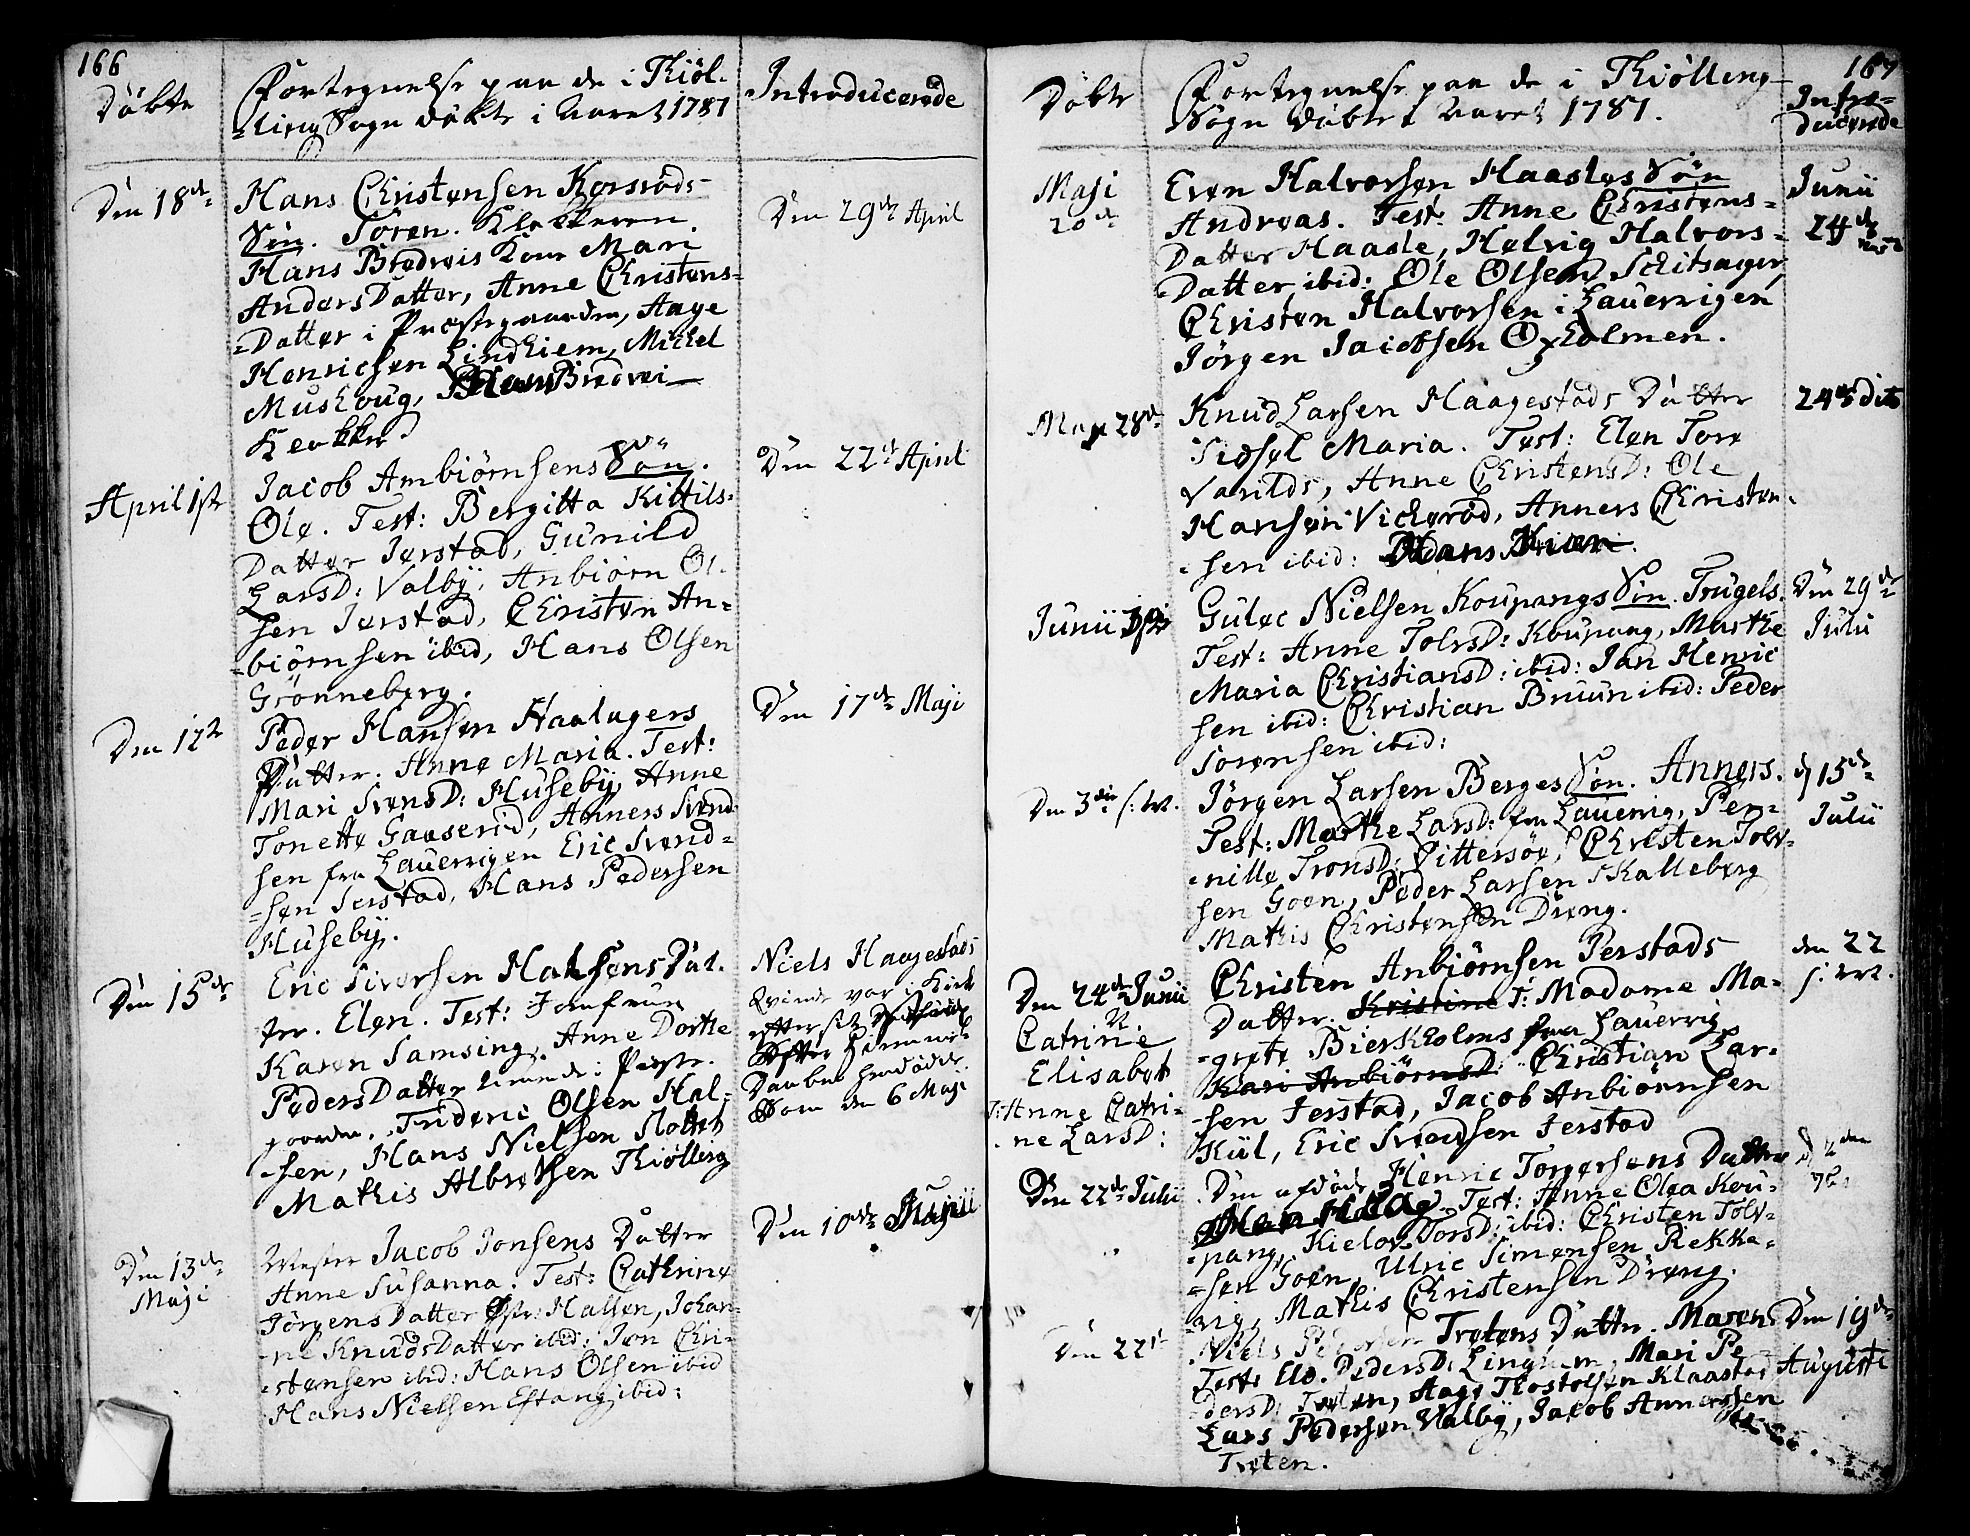 166
Döbte
Fortegnelse paa de i Thiöl-
=ling Sogn döbte i Aaret 1787
Introducerede
Den 18de
Hans Christensen Korsrøds
Sön. Sören. Klokkeren
Hans Bredveis Kone Mari
AndersDatter, Anne Christens-
=Datter i Præstegaarden, Aage
Henrichsen Lindhiem, Mickel
Muskoug, Hans Bredvei
Klokker
Den 29de April
April 1ste
Jacob Ambiörnsens Sön.
Ole. Test: Bergitta Kittils-
Datter Jerstad, Gunild
LarsD: Valby, Anbiörn Ol-
sen Jerstad, Christen An=
=biörnsen ibid, Hans Olsen
Grönneberg.
Den 22de April
Den 12te
Peder Hansen Haalagers
Datter. Anne Maria. Test:
Mari SvensD: Huseby, Anne
Tonette Gaaserid, Anners Svend-
sen fra Lauerrigen Eric Svend=
=sen Jerstad, Hans Pedersen
Huseby.
Den 17de Maji
Den 15de
Eric Iversen Halsens Dat-
ter. Elen. Test: Jomfrue
Karen Samsing, Anne Dorthe
PedersDatter tienende i Præste-
gaarden, Frideric Olsen Hal-
=sen, Hans Nielsen Slottet
Mathis Albretsen Thiölling
Niels Haagestads
Qvinde var i Kirke
efter sit
efter hiemme
Daaben hendöde
Som den 6 Maji
Den 13de
Maji
Mester Jacob Jonsens Datter
Anne Susanna. Test: Cathrine
JörgensDatter Östr: Halsen, Johan-
=ne KnudsDatter ibid: Jon Chri-
=stensen ibid: Hans Olsen ibid
Hans Nielsen Eftang ibid:
Den 10de Junii
167
Döbte
Fortegnelse paa de i Thiölling
Sogn döbte i Aaret 1787.
Intro=
ducerede
Maji
20de
Even Halvorsen Haasles Sön
Andreas. Test: Anne Christens=
Datter Haasle, Helvig Halvors-
=Datter ibid: Ole Olsen Skitsager,
Christen Halvorsen i Lauerrigen
Jörgen Jacobsen Oxholmen.
Junii
24de
Maji 28de
Knud Larsen Haagestads Datter
Sidsel Maria. Test: Elen Tore
Varilds, Anne ChristensD: Ole
Hansen Vickeröd, Anners Christen-
=sen ibid: Hans Kiær
24de dito
Junii 3die
Guloc Nielsen Koupangs Sön. Trugels.
Test: Anne TolvsD: Koupang, Marthe
Maria ChristiansD: ibid: Jan Henric
sen ibid: Christian Bruun ibid: Peder
Sörensen ibid:
Den 29de
Julii
Den 3die
Jörgen Larsen Berges Sön. Anners.
Test: Marthe LarsD: fra Lauerrig, Per-
=nille TronsD: Vittersöe, Christen Tolv-
sen Goen, Peder Larsen Skalleberg
Mathis Christensen Dreng.
d 15de
Julii
Den 24de Junii
Catrine
Elisabet
T: Anne Catri-
ne LarsD:
Christen Anbiörnsen Jerstads
Datter. Kristine T: Madame Ma-
=grete Bierkholms fra Lauerrig
Kari AnbiörnsD: Christian Lar-
=sen Jerstad, Jacob Anbiörnsen
Kiil, Eric Svendsen Jerstad
den 22
Den 22de Julii
Den Henric Torgersens Datter
Test: Anne Olea Kou-
=pang, Kielov TorsD: ibid: Christen Tolv-
=sen Goen, Ulric Simensen Rekke-
=vig, Mathis Christensen Dreng.
Den 22de
Niels Pedersen Tretens Datter. Maren
Test: PedersD: Lingum, Mari Pe-
dersD: Treten, Aage Thostelsen Klaastad
Lars Pedersen Valby, Jacob Annersen
Treten.
Den 19de
Augusti